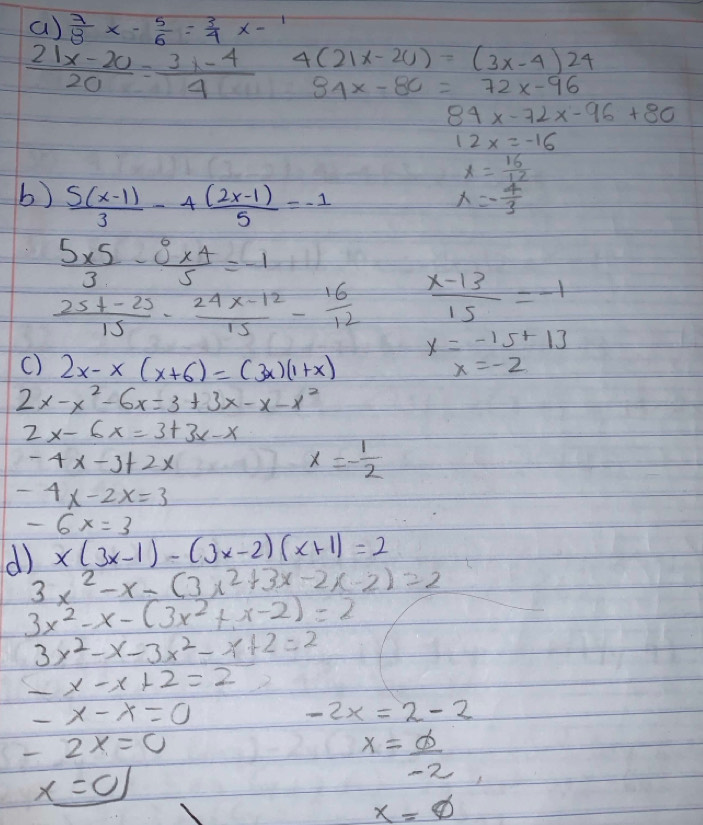 a) 7/8 x - 5/6 = 3/4 x - 1
21x-20/20 = 3x-4/4 4(21x-20) = (3x-4)24
84x-80 = 72x-96
84x-72x-96+80
12x=-16
x=16/12
x=-4/3
b) 5(x-1)/3 - 4(2x-1)/5 = -1
5x5/3 - 8x4/5 = -1
25x-25/15 - 24x-12/15 - 16/12 x-13/15 = -1
x = -15+13
x=-2
c) 2x-x(x+6)=(3x)(1+x)
2x-x²-6x=3+3x-x-x²
2x-6x=3+3x-x
-4x-3+2x x=-1/2
-4x-2x=3
-6x=3
d) x(3x-1)-(3x-2)(x+1)=2
3x²-x-(3x²+3x-2x-2)=2
3x²-x-(3x²+x-2)=2
3x²-x-3x²-x+2=2
-x-x+2=2
-x-x=0 -2x=2-2
-2x=0 x=0/-2
x=0 x=0